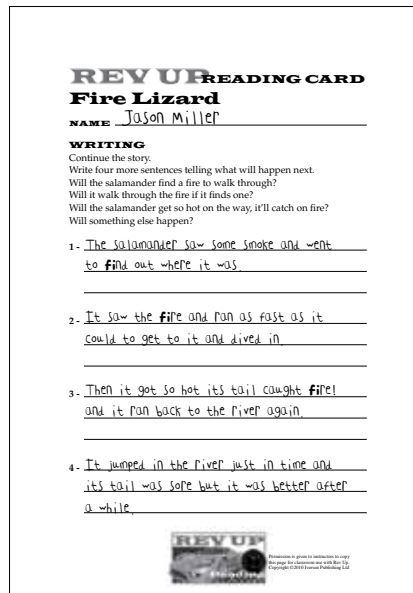 REV UP READING CARD
Fire Lizard
NAME Jason Miller
WRITING
Continue the story.
Write four more sentences telling what will happen next.
Will the salamander find a fire to walk through?
Will it walk through the fire if it finds one?
Will the salamander get so hot on the way, it'll catch on fire?
Will something else happen?
1 - The salamander saw some smoke and went
to find out where it was.
2 - It saw the fire and ran as fast as it
could to get to it and dived in.
3 - Then it got so hot its tail caught fire!
and it ran back to the river again.
4 - It jumped in the river just in time and
its tail was sore but it was better after
a while.
REV UP
Reading
Permission is given to instructors to copy
this page for classroom use with Rev Up.
Copyright ©2010 Iversen Publishing Ltd